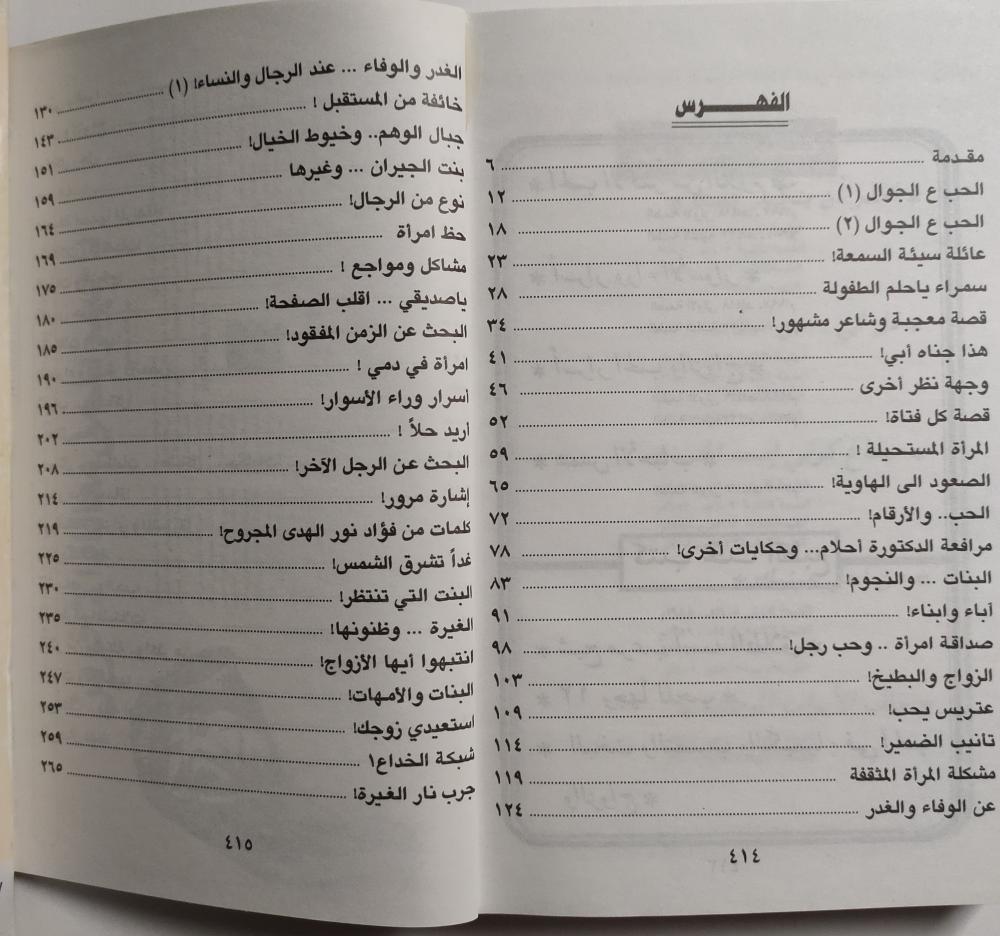 الفهرس
مقدمة ٦
الحب ع الجوال (١) ١٢
الحب ع الجوال (٢) ١٨
عائلة سيئة السمعة! ٢٣
سمراء ياحلم الطفولة ٢٨
قصة معجبة وشاعر مشهور! ٣٤
هذا جناه أبي! ٤١
وجهة نظر أخرى ٤٦
قصة كل فتاة! ٥٢
المرأة المستحيلة ! ٥٩
الصعود الى الهاوية! ٦٥
الحب.. والأرقام! ٧٢
مرافعة الدكتورة أحلام... وحكايات أخرى! ٧٨
البنات ... والنجوم! ٨٣
أباء وابناء! ٩١
صداقة امرأة .. وحب رجل! ٩٨
الزواج والبطيخ! ١٠٣
عتريس يحب! ١٠٩
تأنيب الضمير! ١١٤
مشكلة المرأة المثقفة ١١٩
عن الوفاء والغدر ١٢٤
٤١٤
الغدر والوفاء ... عند الرجال والنساء! (١) ١٣٠
خائفة من المستقبل ! ١٤٣
جبال الوهم.. وخيوط الخيال! ١٥١
بنت الجيران ... وغيرها ١٥٩
نوع من الرجال! ١٦٤
حظ امرأة ١٦٩
مشاكل ومواجع ! ١٧٥
ياصديقي ... اقلب الصفحة! ١٨٠
البحث عن الزمن المفقود! ١٨٥
امرأة في دمي ! ١٩٠
أسرار وراء الأسوار! ١٩٦
أريد حلاً ! ٢٠٢
البحث عن الرجل الآخر! ٢٠٨
إشارة مرور! ٢١٤
كلمات من فؤاد نور الهدى المجروح! ٢١٩
غداً تشرق الشمس! ٢٢٥
البنت التي تنتظر! ٢٣٠
الغيرة ... وظنونها! ٢٣٥
انتبهوا أيها الأزواج! ٢٤٠
البنات والأمهات! ٢٤٧
استعيدي زوجك! ٢٥٣
شبكة الخداع! ٢٥٩
جرب نار الغيرة! ٢٦٥
٤١٥